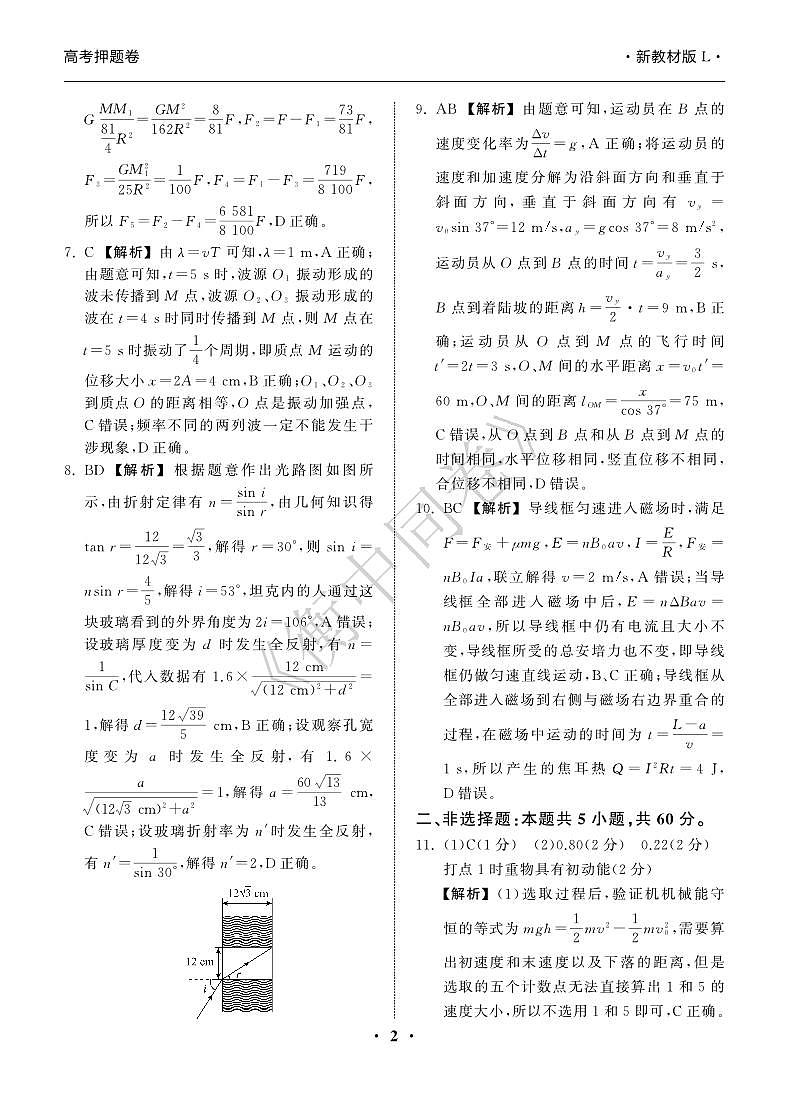 高考押题卷
·新教材版 L·
G MM₁/(81/4 R²)=GM²/162R²=8/81 F,F₂=F-F₁=73/81 F,
F₃=GM₁²/25R²=1/100 F,F₄=F₁-F₃=719/8 100 F,
所以 F₅=F₂-F₄=6 581/8 100 F,D 正确。
7. C 【解析】由 λ=vT 可知,λ=1 m,A 正确;
由题意可知,t=5 s 时,波源 O₁ 振动形成的
波未传播到 M 点,波源 O₂、O₃ 振动形成的
波在 t=4 s 时同时传播到 M 点,则 M 点在
t=5 s 时振动了 1/4 个周期,即质点 M 运动的
位移大小 x=2A=4 cm,B 正确;O₁、O₂、O₃
到质点 O 的距离相等,O 点是振动加强点,
C 错误;频率不同的两列波一定不能发生干
涉现象,D 正确。
8. BD 【解析】根据题意作出光路图如图所
示,由折射定律有 n=sin i/sin r,由几何知识得
tan r=12/12√3=√3/3,解得 r=30°,则 sin i=
nsin r=4/5,解得 i=53°,坦克内的人通过这
块玻璃看到的外界角度为 2i=106°,A 错误;
设玻璃厚度变为 d 时发生全反射,有 n=
1/sin C,代入数据有 1.6×12 cm/√((12 cm)²+d²)=
1,解得 d=12√39/5 cm,B 正确;设观察孔宽
度变为 a 时发生全反射,有 1.6×
a/√((12√3 cm)²+a²)=1,解得 a=60√13/13 cm,
C 错误;设玻璃折射率为 n′时发生全反射,
有 n′=1/sin 30°,解得 n′=2,D 正确。
12√3 cm
12 cm
r
i
9. AB 【解析】由题意可知,运动员在 B 点的
速度变化率为 Δv/Δt=g,A 正确;将运动员的
速度和加速度分解为沿斜面方向和垂直于
斜面方向,垂直于斜面方向有 vᵧ=
v₀sin 37°=12 m/s,aᵧ=gcos 37°=8 m/s²,
运动员从 O 点到 B 点的时间 t=vᵧ/aᵧ=3/2 s,
B 点到着陆坡的距离 h=vᵧ/2·t=9 m,B 正
确;运动员从 O 点到 M 点的飞行时间
t′=2t=3 s,O、M 间的水平距离 x=v₀t′=
60 m,O、M 间的距离 l_OM=x/cos 37°=75 m,
C 错误,从 O 点到 B 点和从 B 点到 M 点的
时间相同,水平位移相同,竖直位移不相同,
合位移不相同,D 错误。
10. BC 【解析】导线框匀速进入磁场时,满足
F=F安+μmg,E=nB₀av,I=E/R,F安=
nB₀Ia,联立解得 v=2 m/s,A 错误;当导
线框全部进入磁场中后,E=nΔBav=
nB₀av,所以导线框中仍有电流且大小不
变,导线框所受的总安培力也不变,即导线
框仍做匀速直线运动,B、C 正确;导线框从
全部进入磁场到右侧与磁场右边界重合的
过程,在磁场中运动的时间为 t=(L-a)/v=
1 s,所以产生的焦耳热 Q=I²Rt=4 J,
D 错误。
二、非选择题:本题共 5 小题,共 60 分。
11. (1)C(1 分) (2)0.80(2 分) 0.22(2 分)
打点 1 时重物具有初动能(2 分)
【解析】(1)选取过程后,验证机机械能守
恒的等式为 mgh=1/2 mv²-1/2 mv₀²,需要算
出初速度和末速度以及下落的距离,但是
选取的五个计数点无法直接算出 1 和 5 的
速度大小,所以不选用 1 和 5 即可,C 正确。
《衡中同卷》
· 2 ·